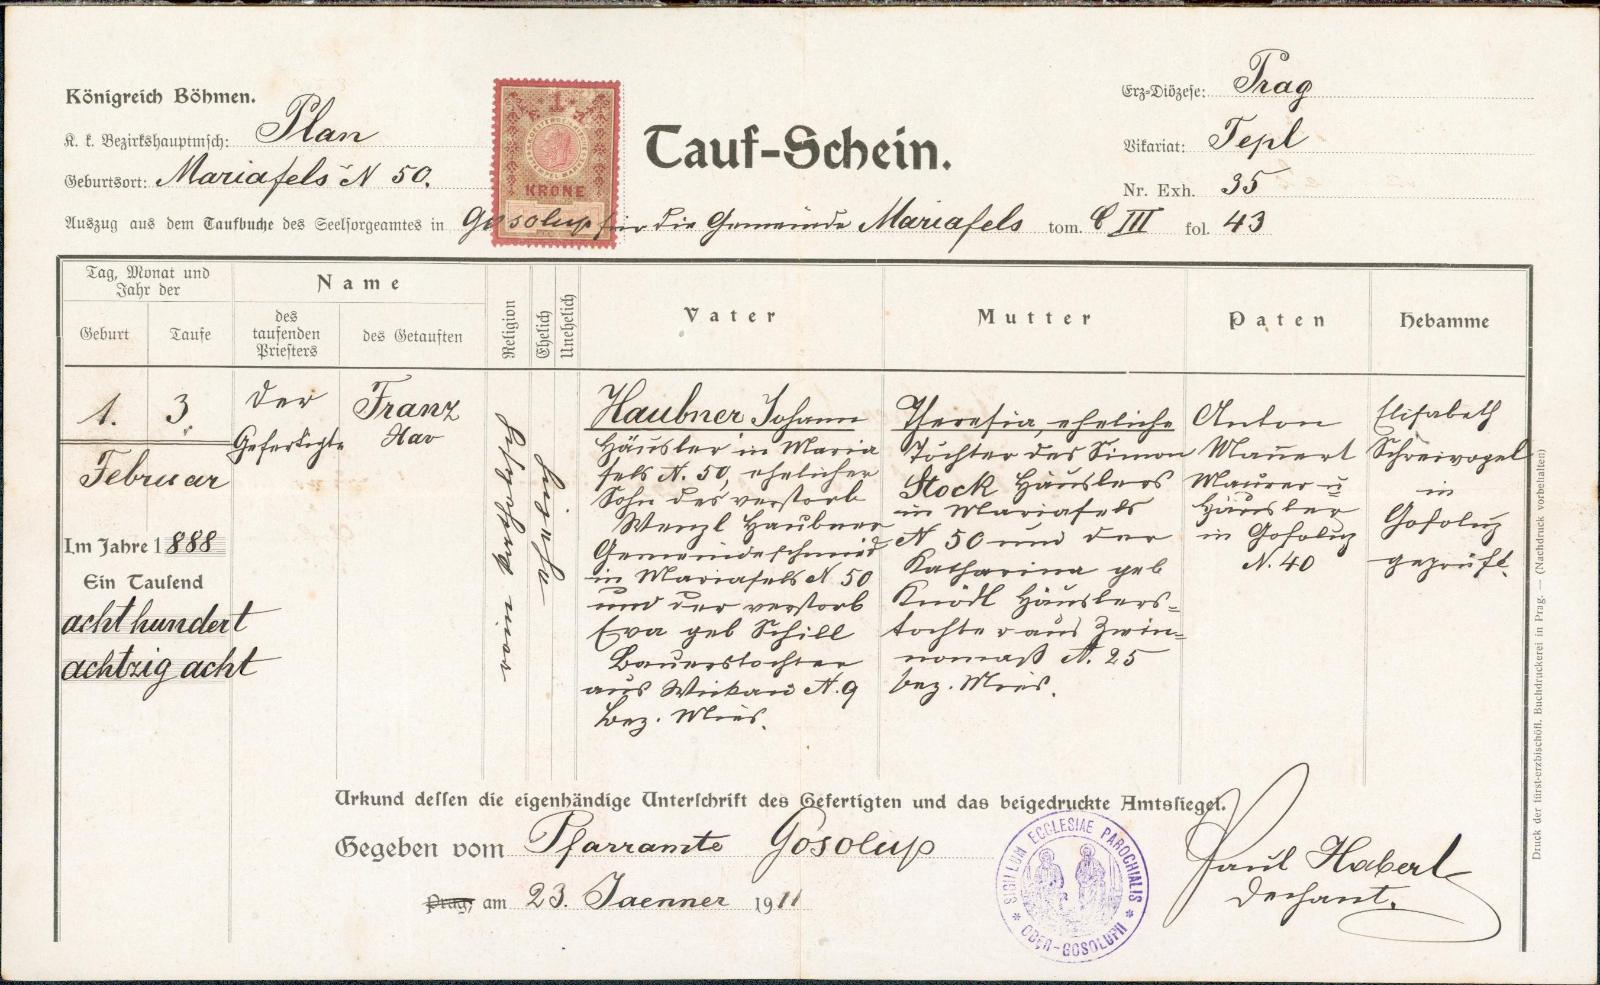 Königreich Böhmen.
K. k. Bezirkshauptmsch: Plan
Geburtsort: Mariafels N 50.
1
KRONE
Tauf-Schein.
Erz-Diözese: Prag
Vikariat: Tepl
Nr. Exh. 35
Auszug aus dem Taufbuche des Seelsorgeamtes in Gosolup für die Gemeinde Mariafels tom. C III fol. 43
Tag, Monat und
Jahr der
Geburt
Taufe
Name
des
taufenden
Priesters
des Getauften
Religion
Ehelich
Unehelich
Vater
Mutter
Paten
Hebamme
1. 3.
Februar
Im Jahre 1888
Ein Tausend
acht hundert
achtzig acht
der
Gefertigte
Franz
Xav
katholisch
eheliche
Haubner Johann
Häusler in Maria
fels N. 50, ehelicher
Sohn des verstorb
Wenzl Haubner
Gemeindeschmied
in Mariafels N 50
und der verstorb
Eva geb Schill
Bauerstochter
aus Wickau N. 9
bez. Mies.
Theresia, eheliche
Tochter des Simon
Stock Häuslers
in Mariafels
N 50 und der
Katharina geb
Knödl Häuslers-
tochter aus Zwin-
nomaß N. 25
bez. Mies.
Anton
Mauert
Maurer u
Häusler
in Gosolup
N. 40
Elisabeth
Schreivogel
in
Gosolup
geprüft.
Urkund dessen die eigenhändige Unterschrift des Gefertigten und das beigedruckte Amtssiegel.
Gegeben vom Pfarramte Gosolup
Prag, am 23. Jaenner 1911
SIGILLUM ECCLESIAE PAROCHIALIS
* OBER-GOSOLUPH *
Paul Haberl
Dechant.
Druck der fürst-erzbischöfl. Buchdruckerei in Prag. — (Nachdruck vorbehalten)